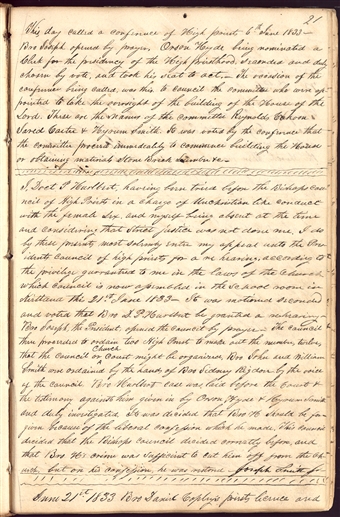 21
This day called a conference of High priests 6th June 1833—
Bro Joseph opened by prayer, Orson Hyde being nominated a
Clerk for the presidency of the High priesthood, seconded and duly
chosen by vote, and took his seat to act,— The occasion of the
conference being called, was this to council the committee who were ap-
pointed to take the oversight of the building of the House of the
Lord. These are the names of the committee Reynolds Cahoon
Jared Carter & Hyrum Smith. It was voted by the conference that
the committee procure immediately to commence building the House
or obtaining materials Stone Brick Lumber &c—
I, Doct P Hurlbert, having been tried before the Bishops coun
cil of High Priests on a charge of unchristian like conduct
with the female sex, and myself being absent at the time
and considering that strict justice was not done me, I do
by these presents most solemnly enter my appeal unto the Pre
sidents council of high priests for a re hearing, according to
the privilege guarantied to me in the laws of the Church
which council is now assembled in the School room in
Kirtland the 21st June 1833— It was motioned seconded
and voted that Bro D. P. Hurlbert be granted a rehearing
Bro Joseph, the President, opened the council by prayer— The council
then proceeded to ordain two High Priests to make out the number, twelve,
that the council or Church Court might be organized, Bro John and William
Smith were ordained by the hands of Bro Sidney Rigdon by the voice
of the council Bro Hurlbert case was laid before the Court &
the testimony against him given in by Orson Hyde & Hyrum Smith
and duly investigated. It was decided that Bro H. should be for
given because of the liberal confession which he made. This council
decided that the Bishops Council decided correctly before, and
that Bro H's crime was sufficient to cut him off from the Ch
urch, but on his confession, he was restored Joseph Smith Jr
June 21st 1833 Bro Daniel Copley's priests licence and